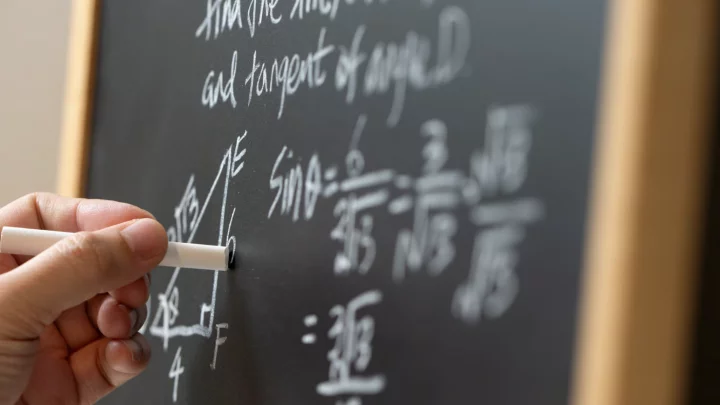 find the sine,
and tangent of angle D
E
Sinθ = 6/2√13 = 3/√13 · √13/√13
2√13
6
θ
F
= 3√13
4